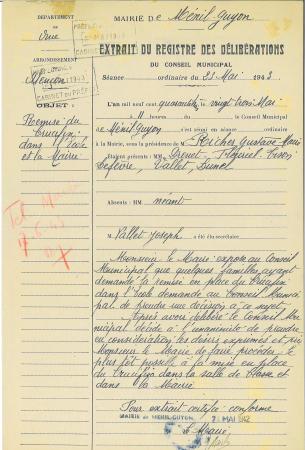 DÉPARTEMENT
de
Orne
ARRONDISSEMENT
Alençon
OBJET :
Remise du
Crucifix
dans l'école
et la Mairie
MAIRIE De Ménil Guyon
EXTRAIT DU REGISTRE DES DÉLIBÉRATIONS
DU CONSEIL MUNICIPAL
Séance ordinaire du 23 Mai 1943
L'an mil neuf cent quarante le vingt trois Mai
à heures du le Conseil Municipal
de Ménil Guyon s'est réuni en séance ordinaire
à la Mairie, sous la présidence de M. Richer Gustave Maire
Étaient présents : MM.
Lefèvre, Vallet,
Absents : MM. néant
M. Vallet Joseph a été élu secrétaire
Monsieur le Maire expose au Conseil
Municipal que quelques familles ayant
demandé la remise en place du Crucifix
dans l'école demande au Conseil Muni-
cipal de prendre une décision à ce sujet.
Après avoir délibéré le Conseil Mu-
nicipal décide à l'unanimité de prendre
en considération les désirs exprimés et prie
Monsieur le Maire de faire procéder le
plus tôt possible à la mise en place
du Crucifix dans la salle de Classe et
dans la Mairie
Pour extrait certifié conforme
MAIRIE de MÉNIL-GUYON MAI
Le Maire